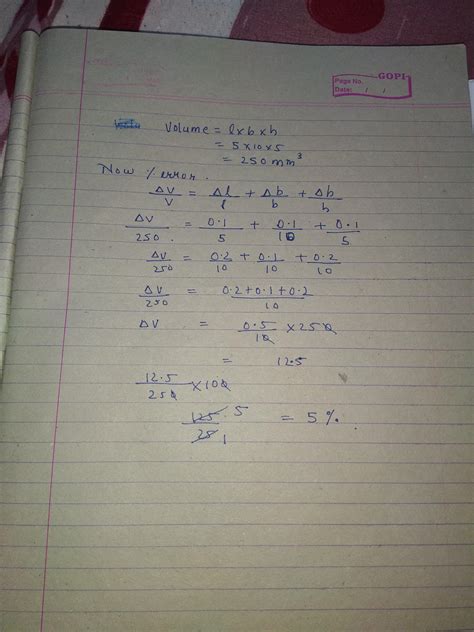 GOPI
Page No.
Date: / /
Volume = l×b×h
= 5×10×5
= 250 mm³
Now % error.
ΔV/V = Δl/l + Δb/b + Δh/h
ΔV/250 = 0.1/5 + 0.1/10 + 0.1/5
ΔV/250 = 0.2/10 + 0.1/10 + 0.2/10
ΔV/250 = 0.2+0.1+0.2/10
ΔV = 0.5/10 × 250
= 12.5
12.5/250 × 100
125/25 5/1 = 5%.